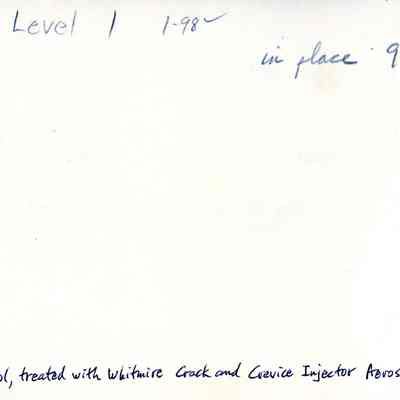 Level 1 1-98✓
in place 9
ol, treated with Whitmire Crack and Crevice Injector Aeros